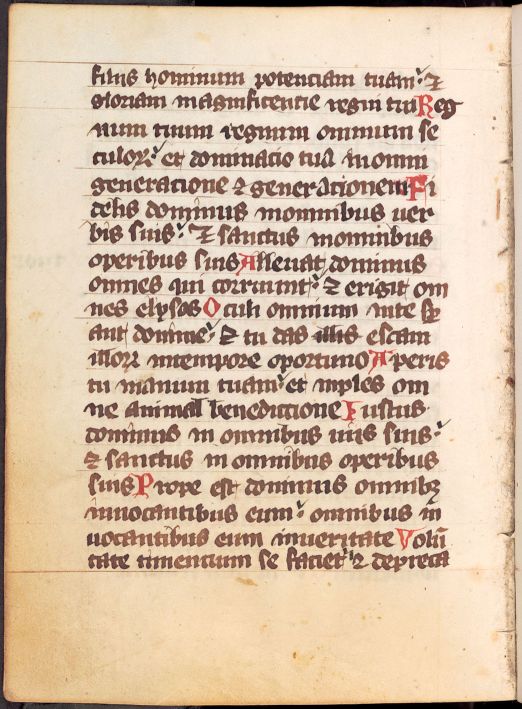 filiis hominum potenciam tuam: ⁊
gloriam magnificentie regni tui Reg
num tuum regnum omnium se
culoꝝ: et dominacio tua inomni
generacione ⁊ generacionem Fi
delis dominus inomnibus uer
bis suis: ⁊ sanctus inomnibus
operibus suis Alleuat dominus
omnes qui corruunt: ⁊ erigit om
nes elysos Oculi omnium inte sꝑ
ant domine: ⁊ tu das illis escam
illoꝝ intempore oportuno Aperis
tu manum tuam: et inples om
ne animal benedictione Iustus
dominus in omnibus uiis suis:
⁊ sanctus in omnibus operibus
suis Prope est dominus omnibꝫ
inuocantibus eum: omnibus in
uocantibus eum inueritate Volū
tate timencium se faciet: ⁊ depreca